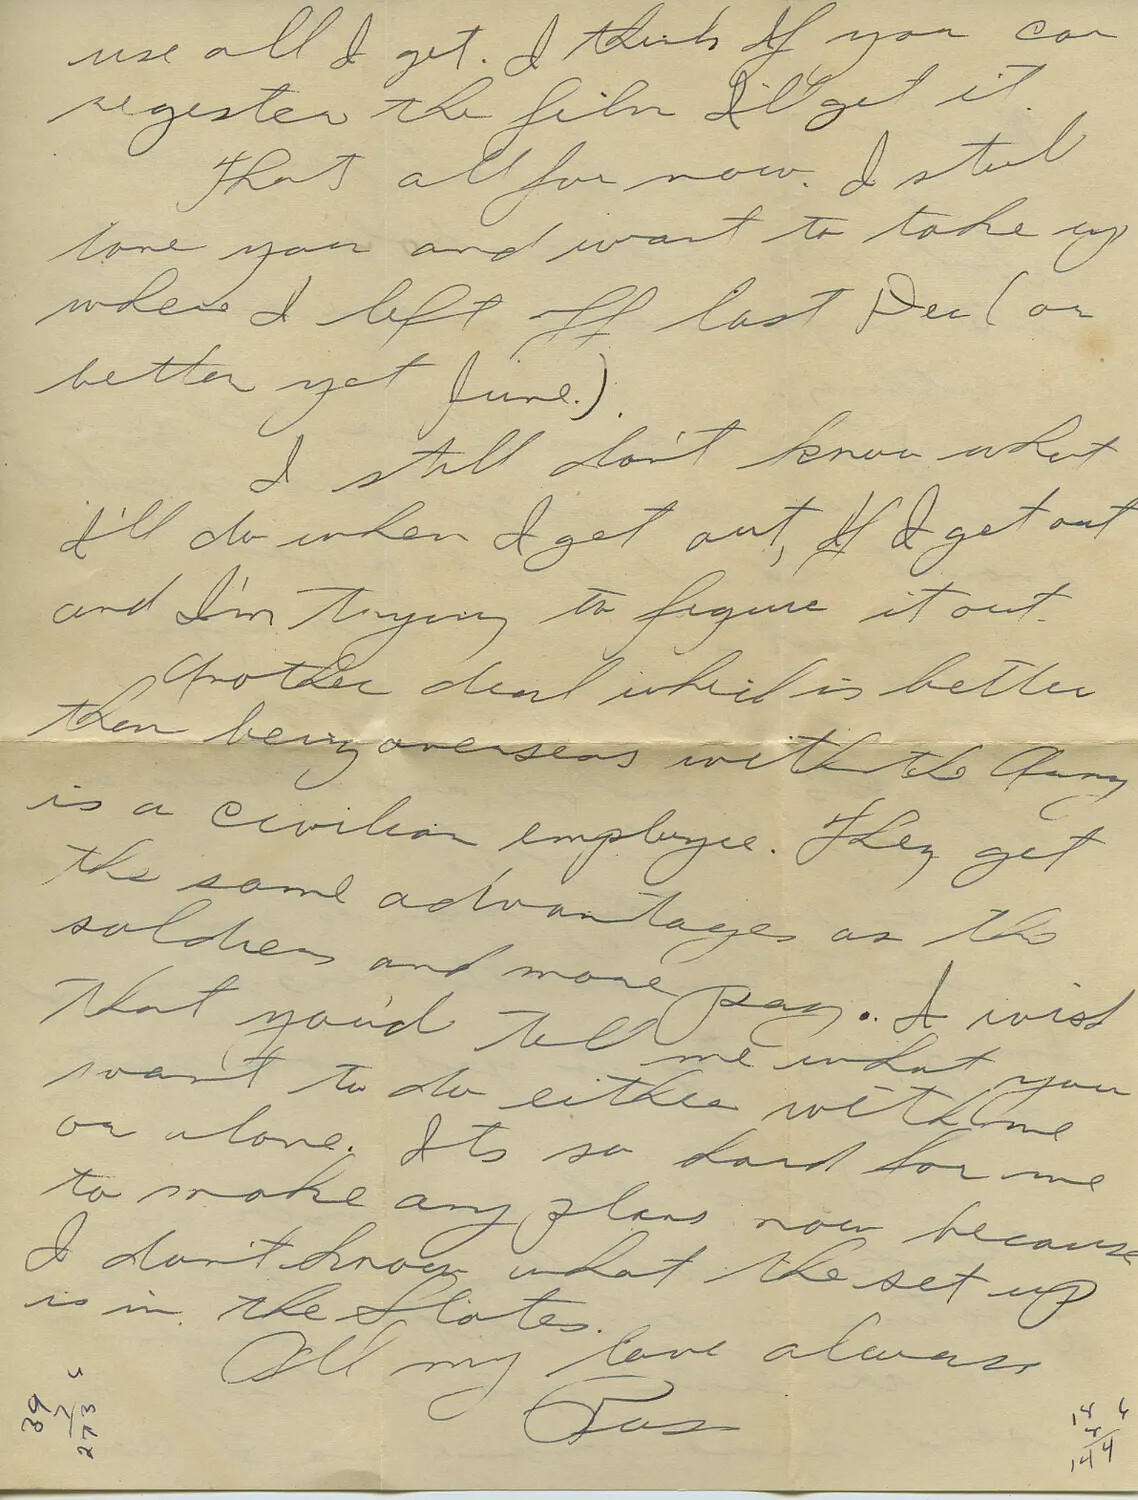 use all I get. I think If you can
regester the film I'll get it.
That's all for now. I still
love you and want to take up
where I left off last Dec (or
better yet June.)
I still don't know what
I'll do when I get out, If I get out
and I'm trying to figure it out.
Another deal which is better
then being overseas with the Army
is a civilian employee. They get
the same advantages as the
soldiers and more pay. I wish
that you'd tell me what you
want to do either with me
or alone. Its so hard for me
to make any plans now because
I don't know what the set up
is in the States.
All my love always
Russ
39
273
14
144